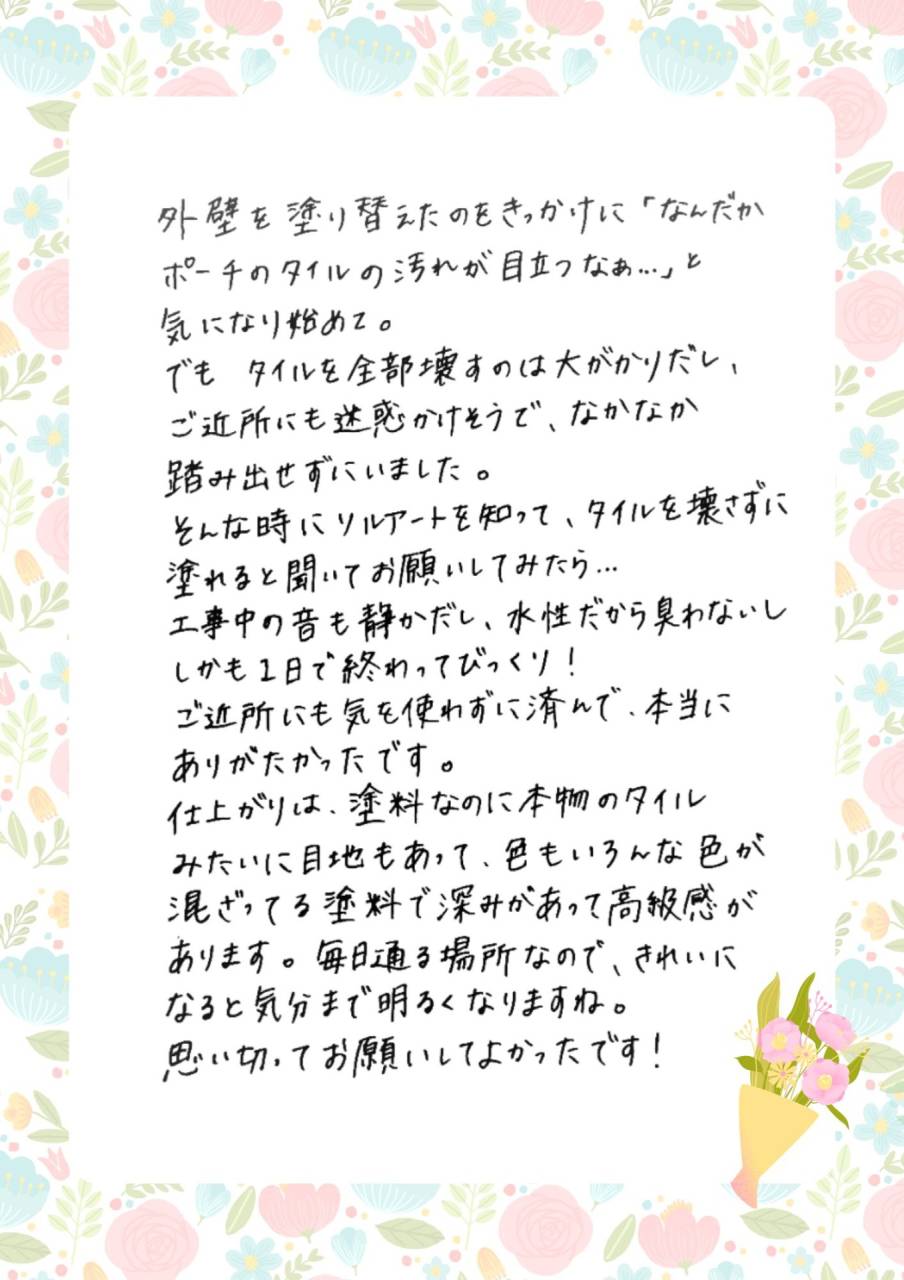 外壁を塗り替えたのをきっかけに「なんだか
ポーチのタイルの汚れが目立つなぁ…」と
気になり始めて。
でも タイルを全部壊すのは大がかりだし、
ご近所にも迷惑かけそうで、なかなか
踏み出せずにいました。
そんな時にソルアートを知って、タイルを壊さずに
塗れると聞いてお願いしてみたら…
工事中の音も静かだし、水性だから臭わないし
しかも1日で終わってびっくり!
ご近所にも気を使わずに済んで、本当に
ありがたかったです。
仕上がりは、塗料なのに本物のタイル
みたいに目地もあって、色もいろんな色が
混ざってる塗料で深みがあって高級感が
あります。毎日通る場所なので、きれいに
なると気分まで明るくなりますね。
思い切ってお願いしてよかったです!